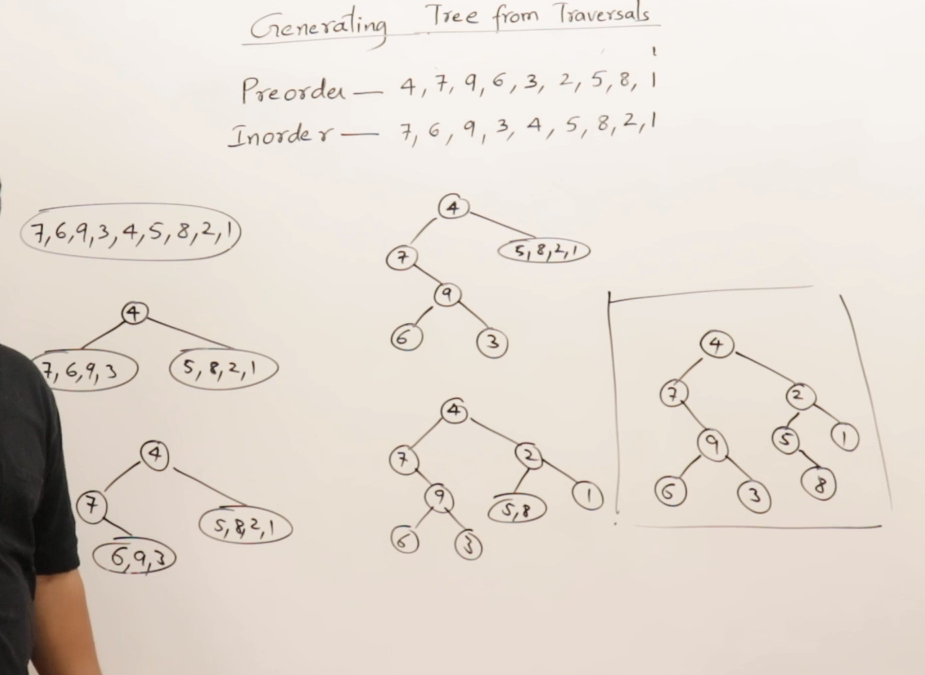 Generating Tree from Traversals
Preorder — 4, 7, 9, 6, 3, 2, 5, 8, 1
Inorder — 7, 6, 9, 3, 4, 5, 8, 2, 1
7, 6, 9, 3, 4, 5, 8, 2, 1
4
7, 6, 9, 3
5, 8, 2, 1
4
7
5, 8, 2, 1
6, 9, 3
4
7
5, 8, 2, 1
9
6
3
4
7
2
9
5, 8
1
6
3
4
7
2
9
5
1
6
3
8